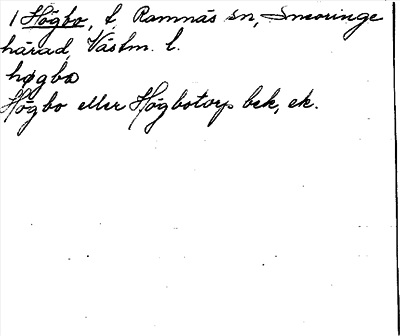 1 Högbo, t, Ramnäs sn, Snevringe
härad, Västm. l.
høgbo
Högbo eller Högbotorp bek, ek.